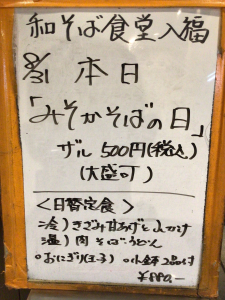 和そば食堂 入福
8/31 本日
「みそかそばの日」
ザル 500円(税込)
(大盛可)
<日替定食>
冷) きざみ甘あげと
温) 肉そば・うどん
○おにぎり(玉子) ○小鉢2品付
¥880.-